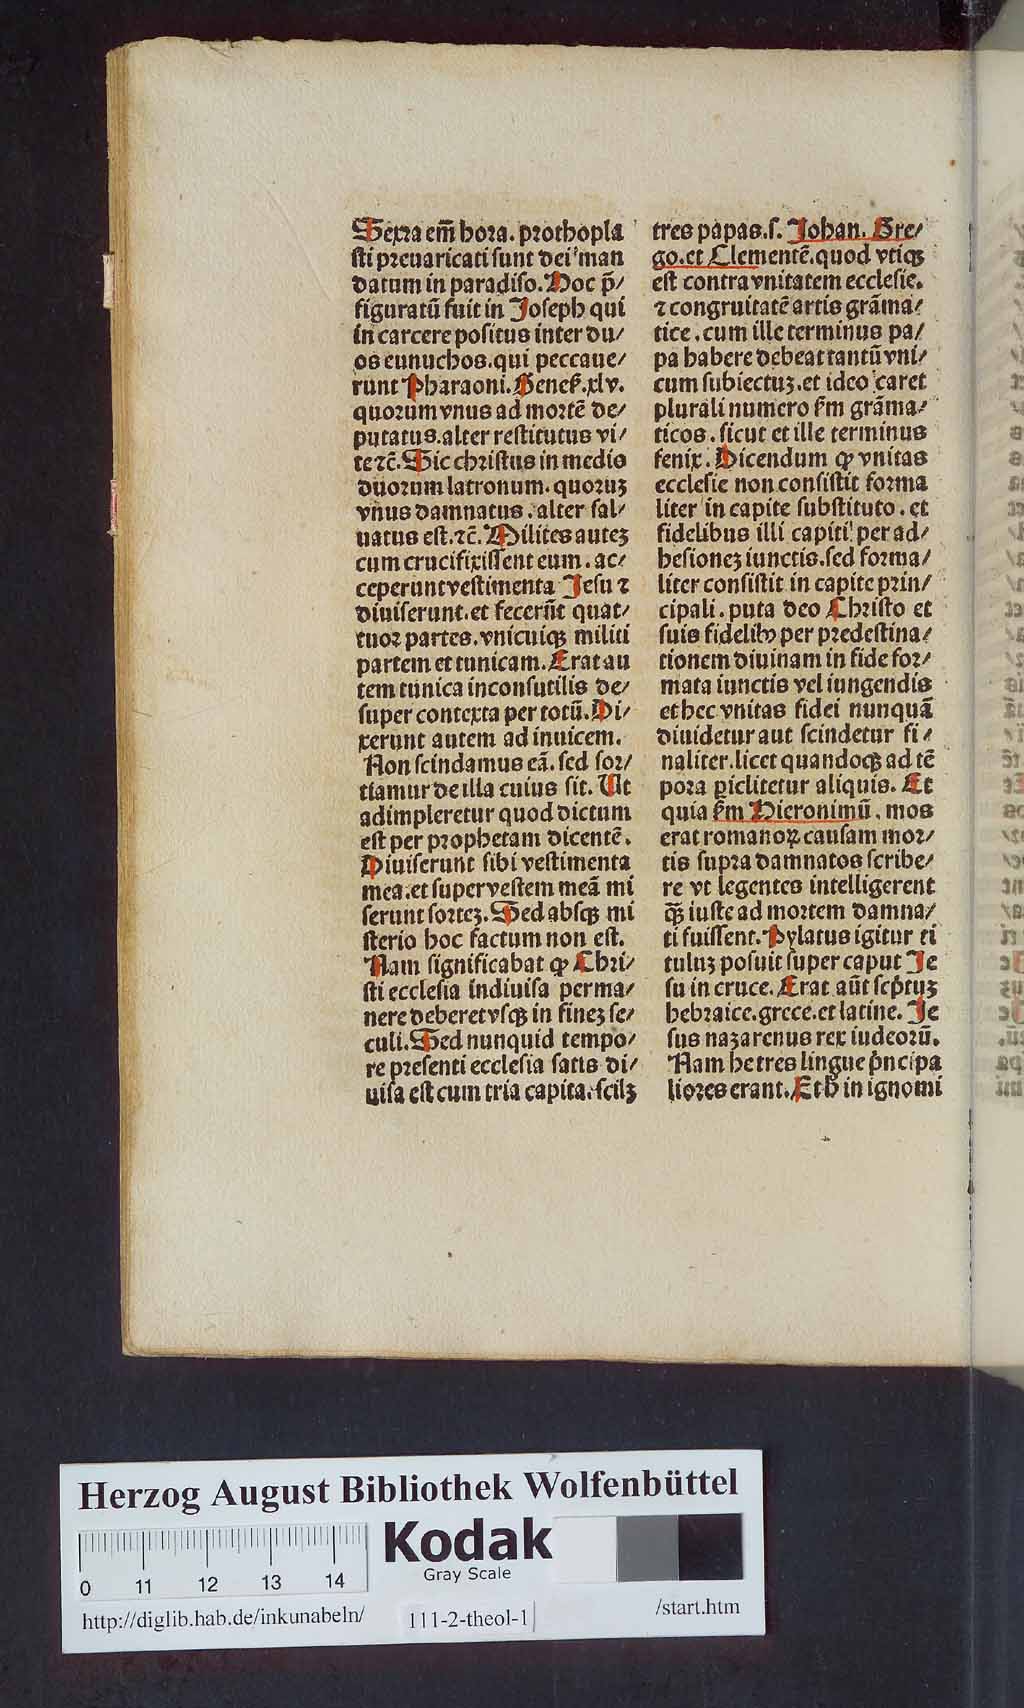 Sexta em̃ hora. prothopla
sti preuaricati sunt dei man
datum in paradiso. Hoc p̃/
figuratũ fuit in Joseph qui
in carcere positus inter du/
os eunuchos. qui peccaue/
runt Pharaoni. Geneẜ. xlv.
quorum vnus ad mortẽ de/
putatus. alter restitutus vi/
te ⁊c̃. Sic christus in medio
duorum latronum. quoruꝫ
vnus damnatus. alter sal/
uatus est. ⁊c̃. Milites auteꝫ
cum crucifixissent eum. ac/
ceperunt vestimenta Jesu ⁊
diuiserunt. et fecerũt quat/
tuor partes. vnicuiqꝫ militi
partem et tunicam. Erat au
tem tunica inconsutilis de/
super contexta per totũ. Di/
xerunt autem ad inuicem.
Non scindamus eã. sed sor/
tiamur de illa cuius sit. Ut
adimpleretur quod dictum
est per prophetam dicentẽ.
Diuiserunt sibi vestimenta
mea. et super vestem meã mi
serunt sorteꝫ. Sed absqꝫ mi
sterio hoc factum non est.
Nam significabat ꝙ Chri/
sti ecclesia indiuisa perma/
nere deberet vsqꝫ in fineꝫ se/
culi. Sed nunquid tempo/
re presenti ecclesia satis di/
uisa est cum tria capita. scilꝫ
tres papas. s. Johan. Gre/
go. et Clementẽ. quod vtiqꝫ
est contra vnitatem ecclesie.
⁊ congruitatẽ artis grãma/
tice. cum ille terminus pa/
pa habere debeat tantũ vni/
cum subiectuꝫ. et ideo caret
plurali numero ẜm grãma/
ticos. sicut et ille terminus
fenix. Dicendum ꝙ vnitas
ecclesie non consistit forma
liter in capite substituto. et
fidelibus illi capiti per ad/
hesioneꝫ iunctis. sed forma/
liter consistit in capite prin/
cipali. puta deo Christo et
suis fidelibꝰ per predestina/
tionem diuinam in fide for/
mata iunctis vel iungendis
et hec vnitas fidei nunquã
diuidetur aut scindetur fi/
naliter. licet quandoqꝫ ad tẽ
pora ꝑiclitetur aliquis. Et
quia ẜm Hieronimũ. mos
erat romanoꝝ causam mor/
tis supra damnatos scribe/
re vt legentes intelligerent
q̃ꝫ iuste ad mortem damna/
ti fuissent. Pylatus igitur ti
tuluꝫ posuit super caput Je
su in cruce. Erat aũt scṗtuꝫ
hebraice. grece. et latine. Je
sus nazarenus rex iudeorũ.
Nam he tres lingue ṗncipa
liores erant. Et ħ in ignomi
Herzog August Bibliothek Wolfenbüttel
Kodak
Gray Scale
0 11 12 13 14
http://diglib.hab.de/inkunabeln/
111-2-theol-1
/start.htm